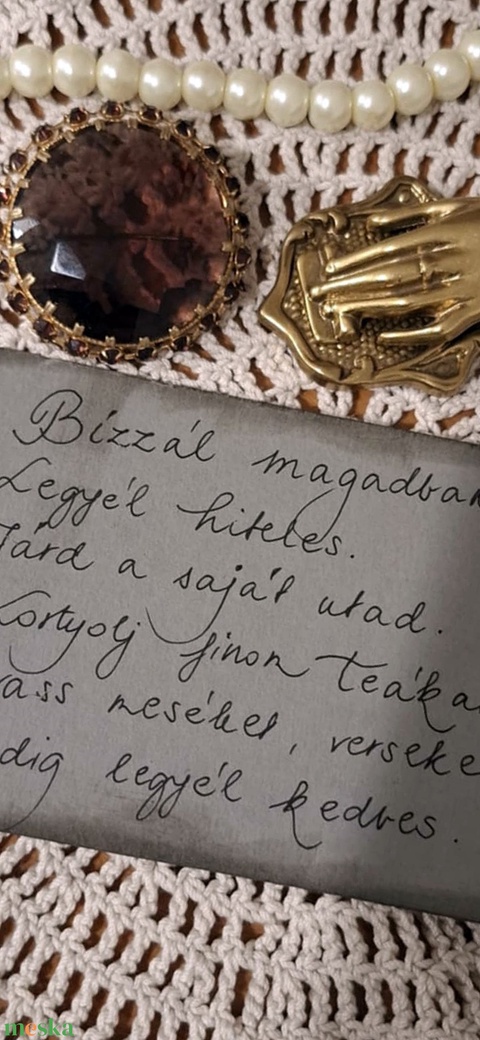 Bízzál magadban
Legyél hiteles.
Járd a saját utad.
Kortyolj finom teáka
vass meséket, verseke
dig legyél kedves.
meska